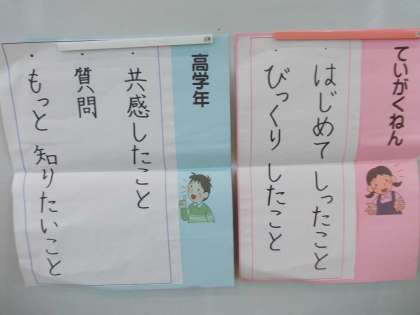 ていがくねん
・はじめて しったこと
・びっくり したこと
高学年
・共感したこと
・質問
・もっと 知りたいこと